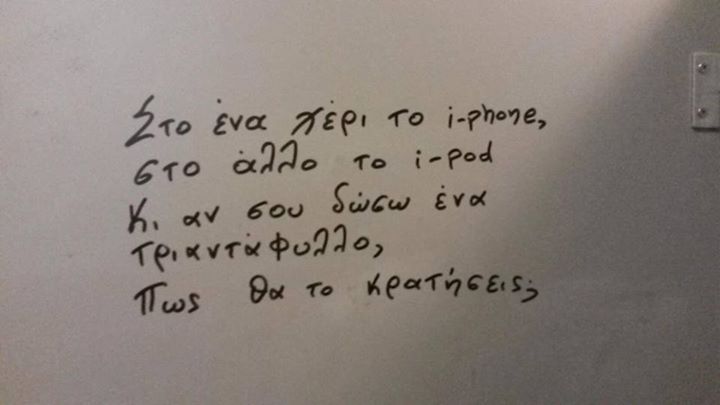 Στο ένα χέρι το i-phone,
στο άλλο το i-pod
Κι αν σου δώσω ένα
τριαντάφυλλο,
Πως θα το κρατήσεις;